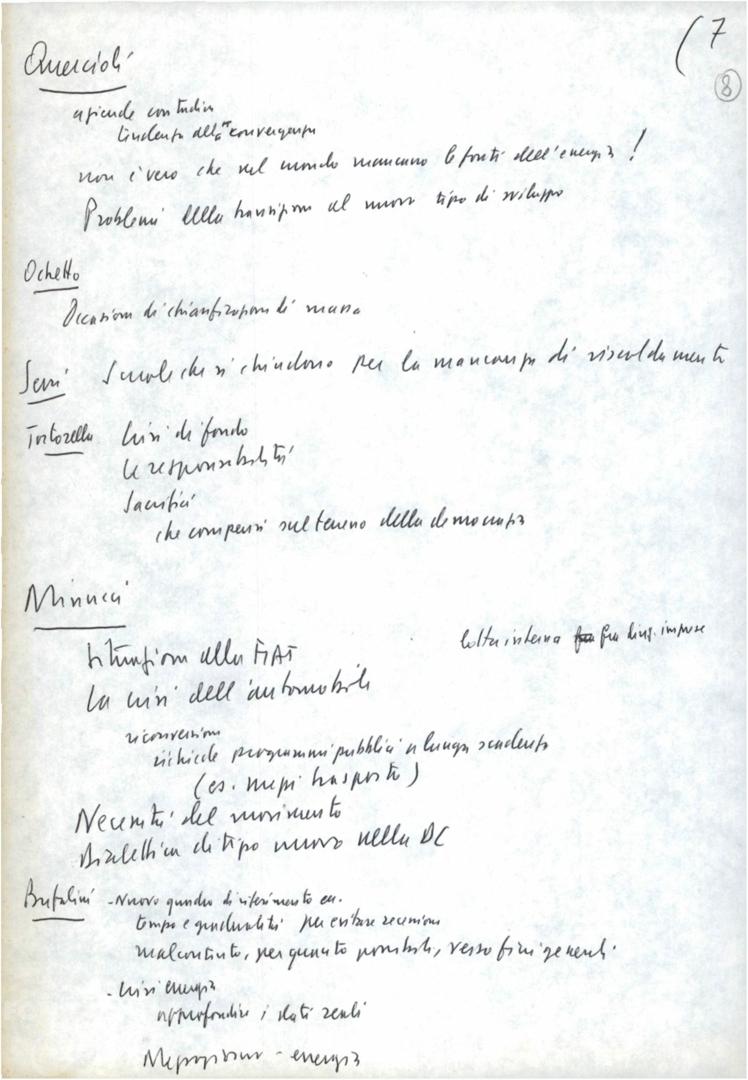 (7
8
Quercioli
aziende contadine
tendenza alla "convergenza
non è vero che nel mondo mancano le fonti dell'energia!
Problemi della transizione al nuovo tipo di sviluppo
Ochetto
Occasioni di chiarificazioni di massa
Seroni Scuole che si chiudono per la mancanza di riscaldamento
Tortorella Crisi di fondo
le responsabilità
Sacrifici
che compensi sul terreno della democrazia
Minucci
Situazione alla FIAT
lotta interna fra ding. imprese
La crisi dell'automobile
riconversione
richiede programmi pubblici a lunga scadenza
(es. mezzi trasporto)
Necessità del movimento
Dialettica di tipo nuovo nella DC
Bufalini - Nuovo quadro di riferimento ec.
tempo e gradualità per evitare recessione
malcontento, per quanto possibile, verso fini generali
- crisi energia
approfondire i dati reali
Mezzogiorno - energia